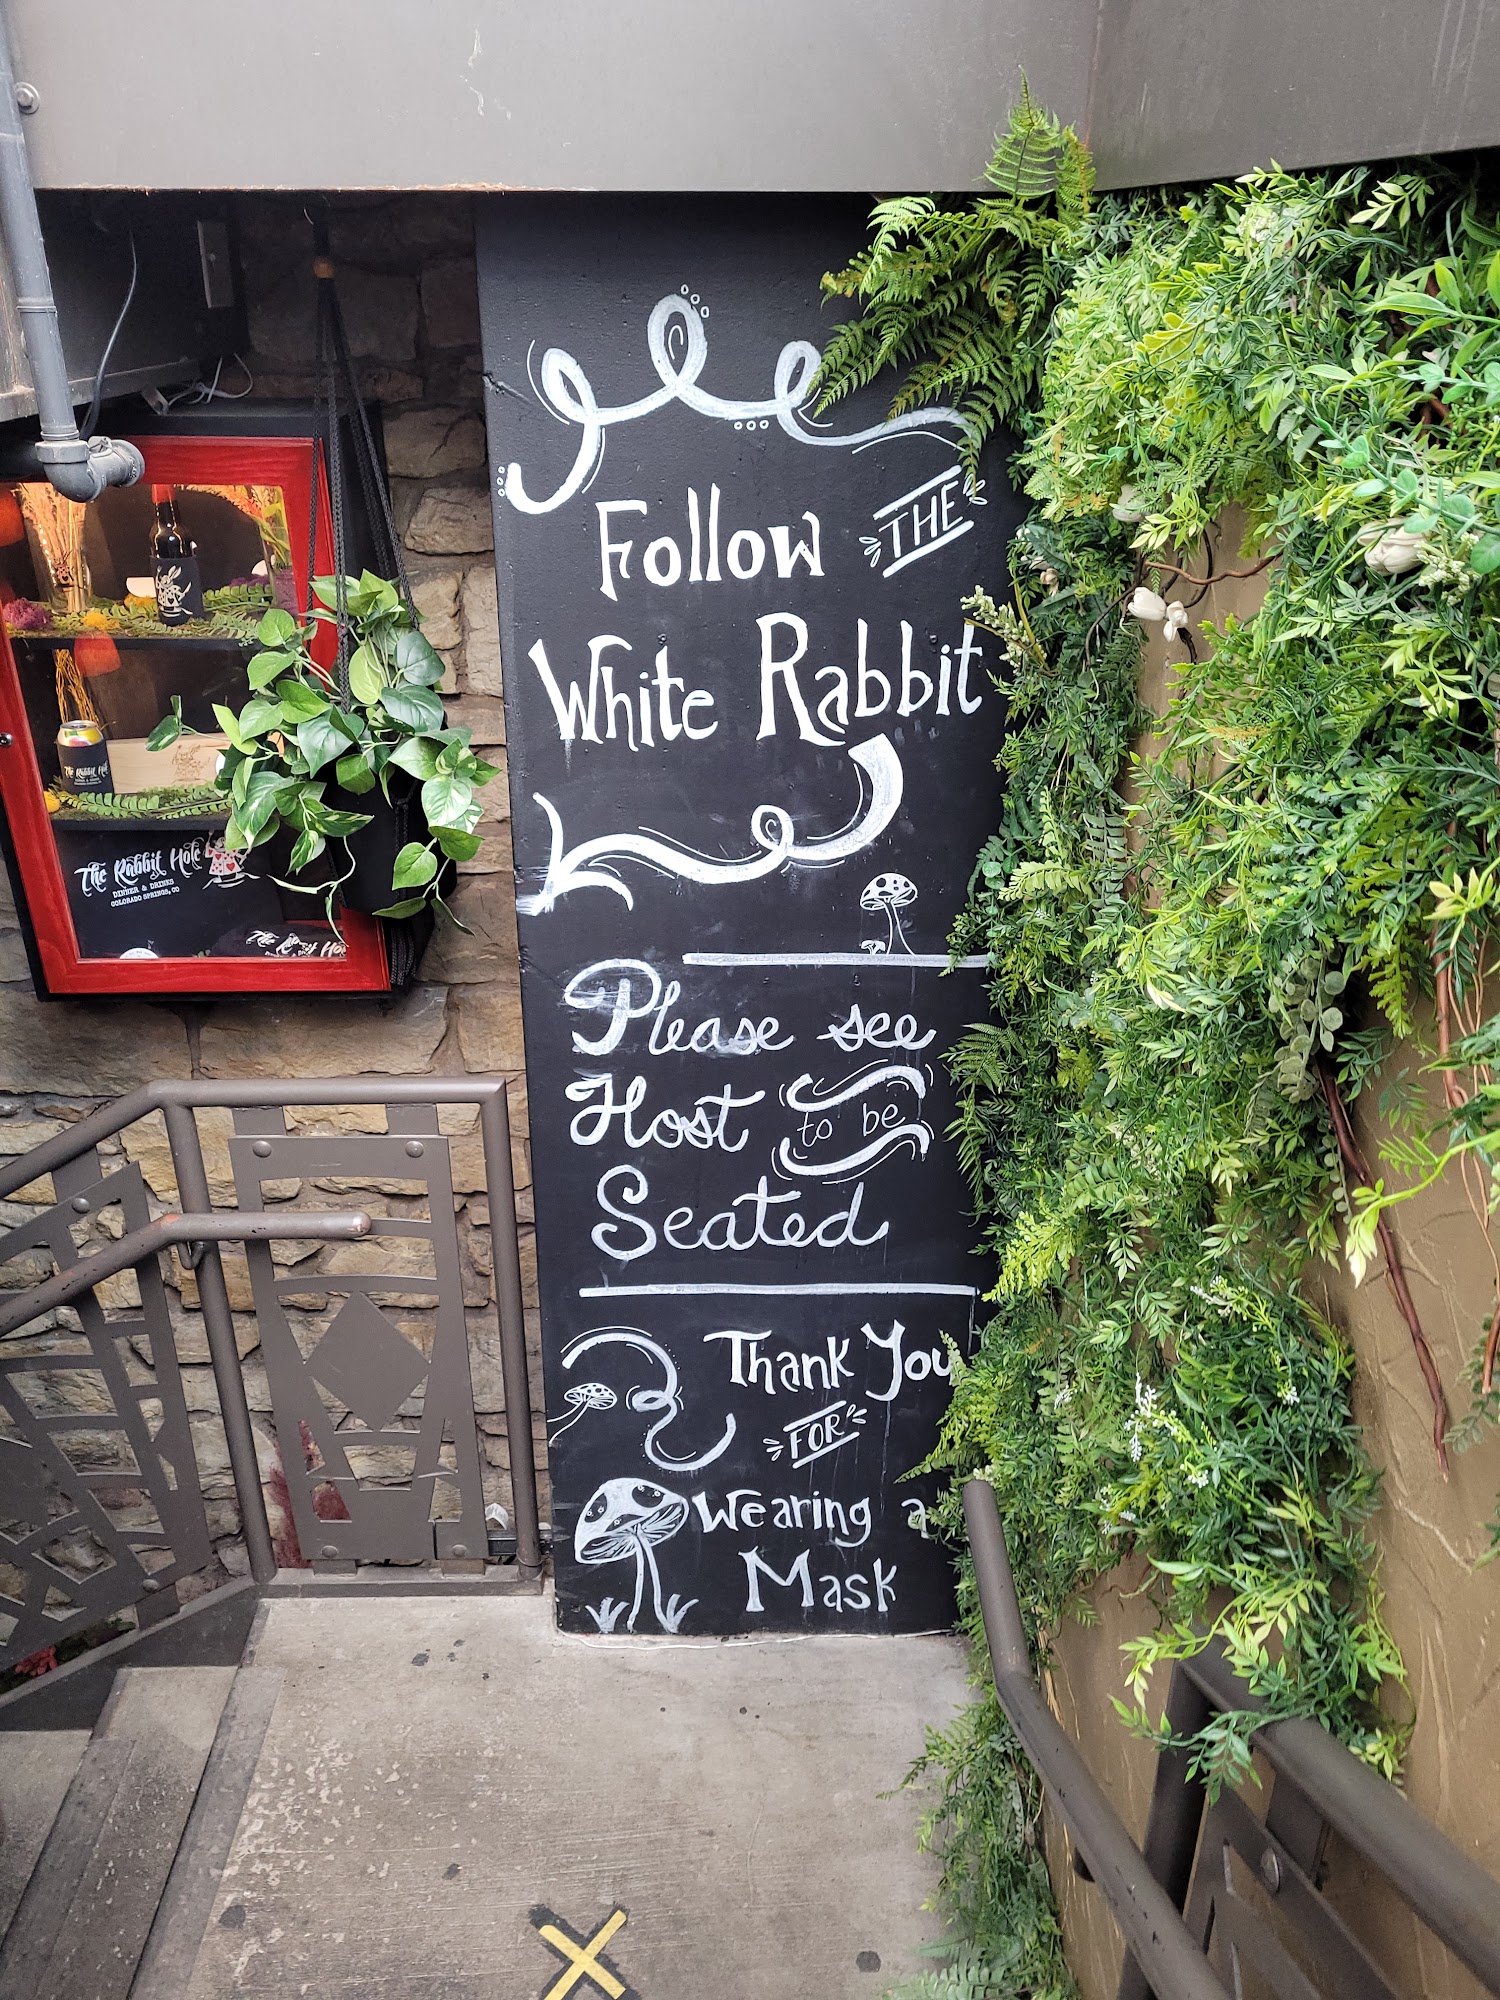 Follow THE
White Rabbit
Please see
Host to be
Seated
Thank You
FOR
Wearing a
Mask
The Rabbit Hole
The Rabbit Hole
DINNER & DRINKS
COLORADO SPRINGS, CO